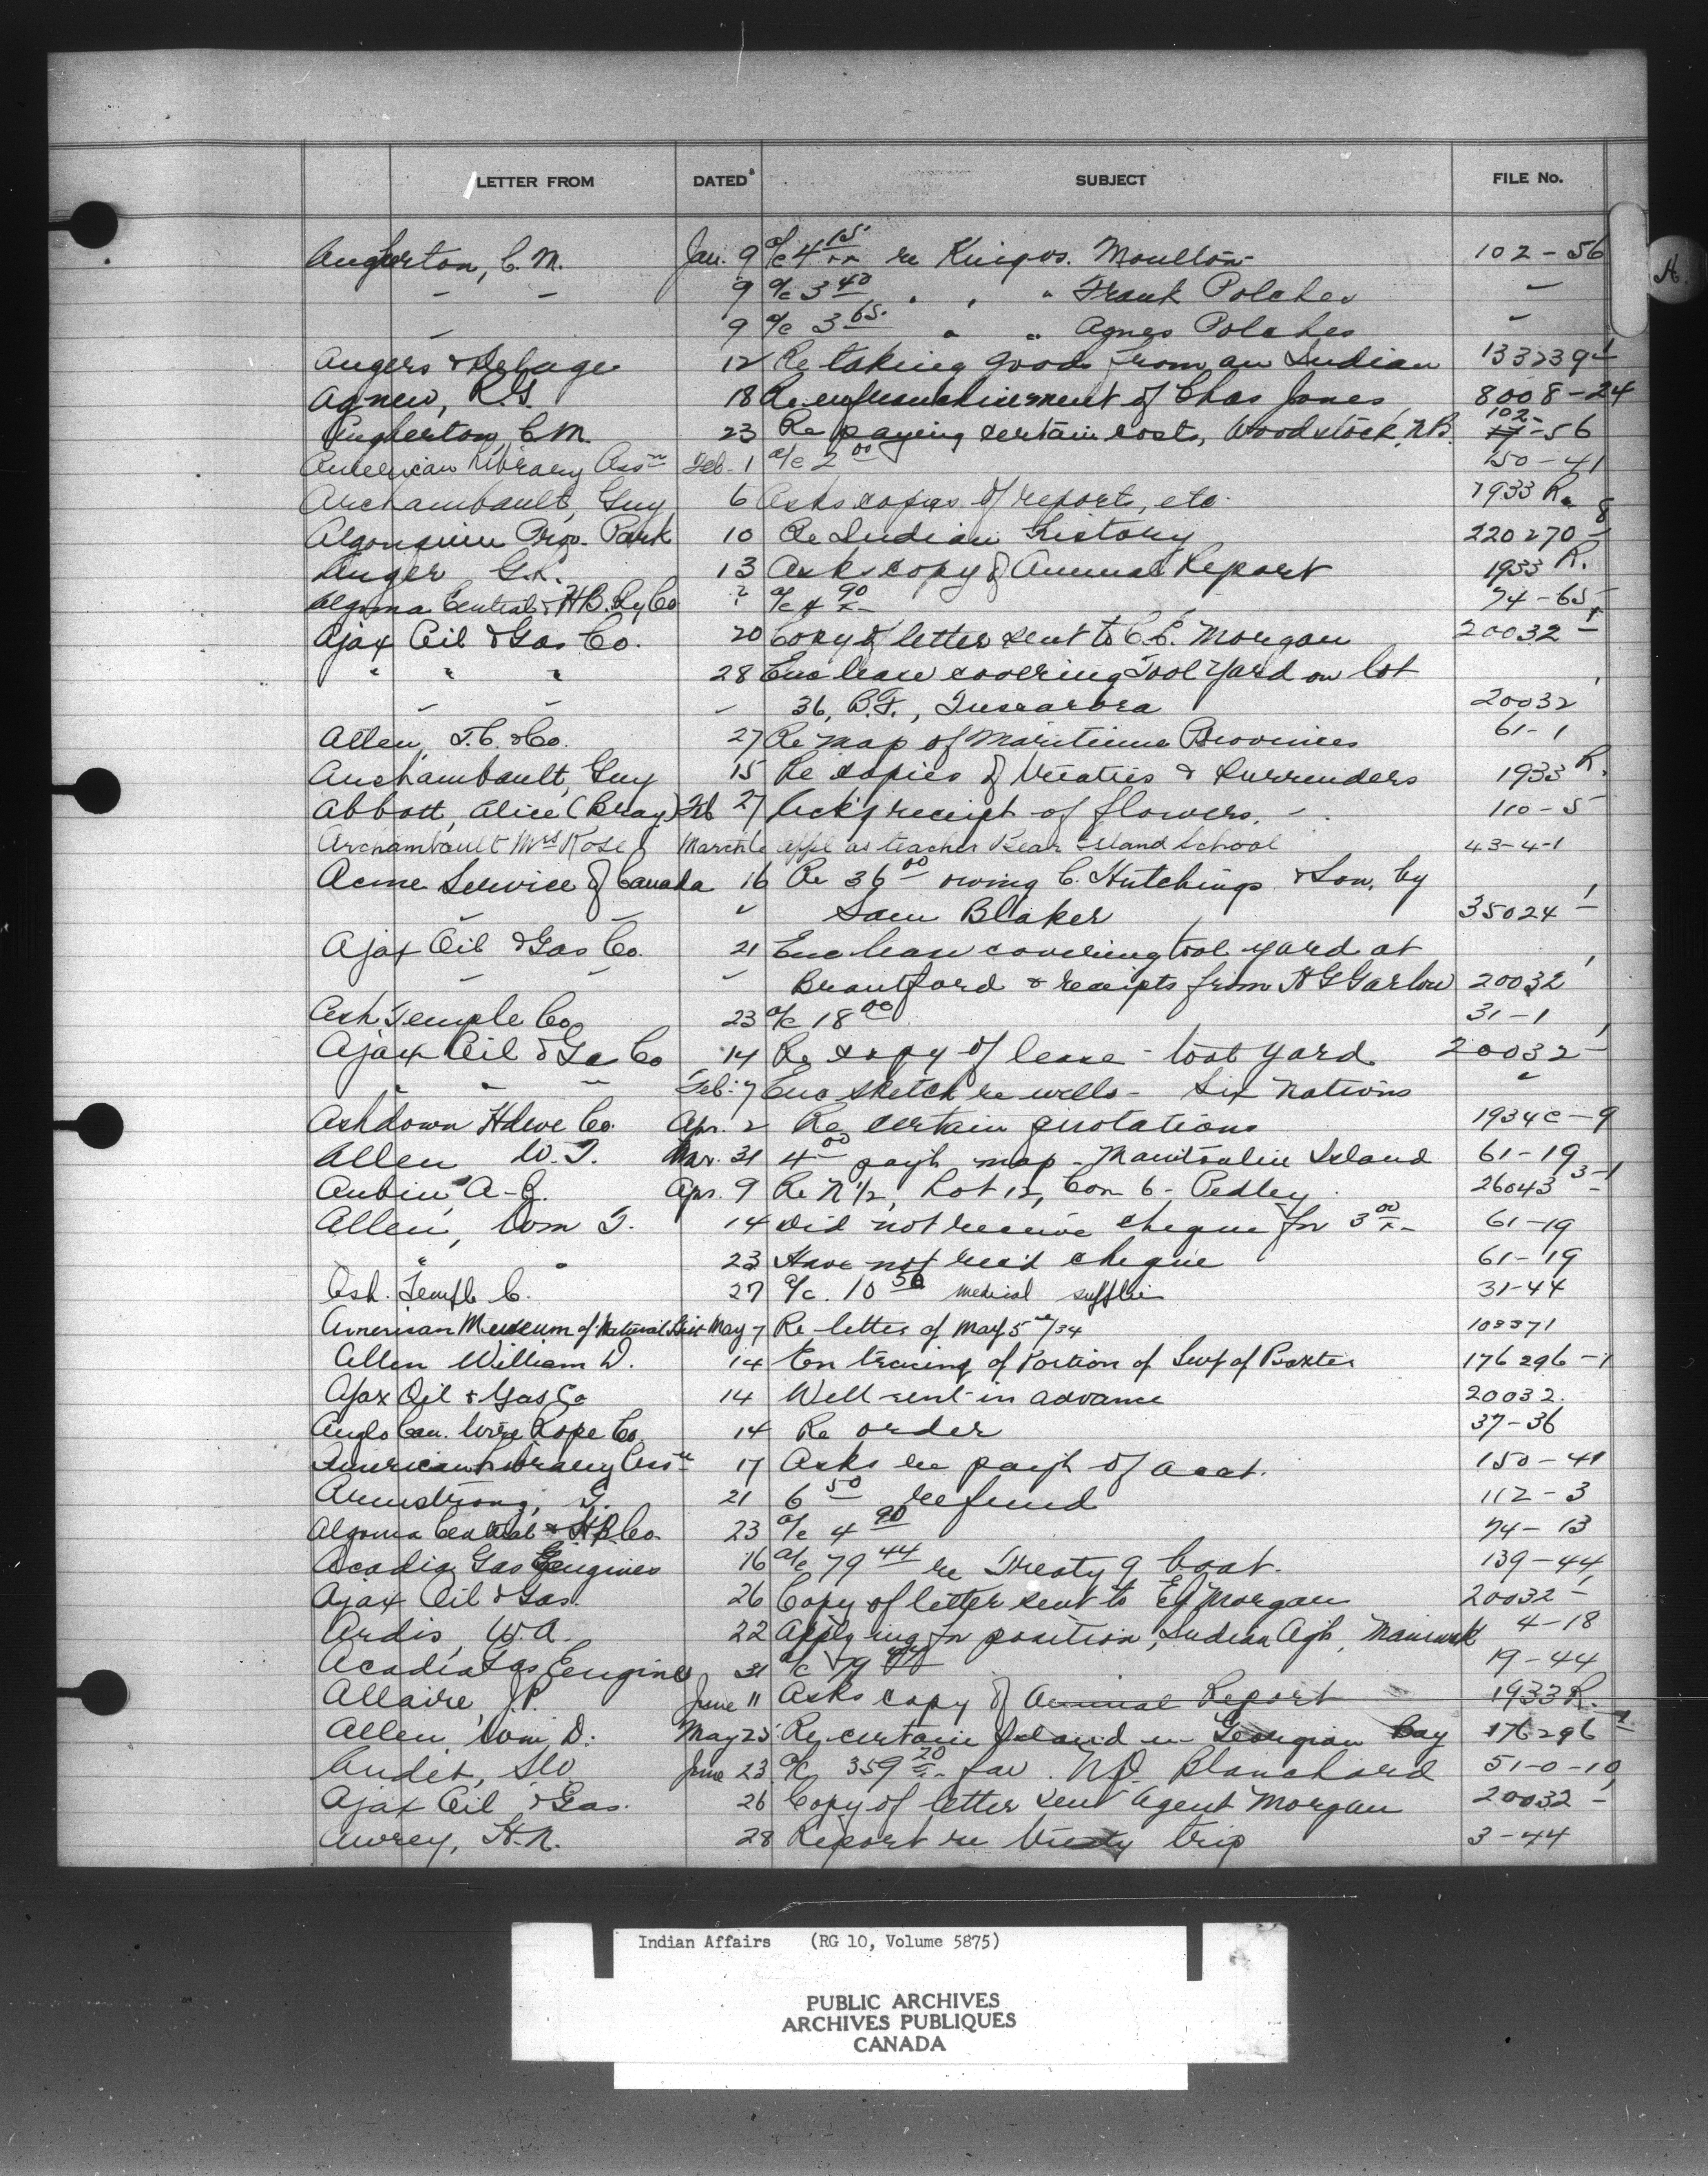 LETTER FROM DATED SUBJECT FILE No.
A
Augherton, C. M. Jan. 9 a/c 4 15/xx re King vs. Moulton 102-56
" " 9 a/c 3 40 " " " Frank Polches "
" 9 a/c 3 65 " " Agnes Polches "
Angers & Delage 12 Re taking goods from an Indian 133239-1
Agnew, R.G. 18 Re enfranchisement of Chas Jones 8008-24
Augherton, C M. 23 Re paying certain costs, Woodstock, N.B. 102-56
American Library Assn Feb. 1 a/c 2 00 150-41
Archambault, Guy 6 Asks copies of reports, etc. 1933 R.
Algonquin Prov. Park 10 Re Indian History 220270-8
Auger G.L. 13 Asks copy of Annual Report 1933 R.
Algoma Central & H.B. Ry Co ? a/c 4 90/x 74-65
Ajax Oil & Gas Co. 20 Copy of letter sent to C.E. Morgan 20032-1
" " " 28 Enc lease covering Tool Yard on lot
" " " 36, B.F., Tuscarora 20032
Allen, T.C. & Co. 27 Re map of Maritime Provinces 61-1
Archambault, Guy 15 Re copies of Treaties & Surrenders 1933 R.
Abbott, Alice (Bray) Feb 27 Ack'g receipt of flowers. 110-5
Archambault Mrs Rose March 6 appl as teacher Bear Island School 43-4-1
Acme Service of Canada 16 Re 36 00 owing C. Hutchings & Son, by
" " " Sam Blaker 35024-1
Ajax Oil & Gas Co. 21 Enc lease covering tool yard at
" " " Brantford & receipts from H G Garlow 20032
Ash Temple Co 23 a/c 18 00 31-1
Ajax Oil & Gas Co 14 Re copy of lease - tool yard 20032-1
" " " Feb. 7 Enc sketch re wells - Six Nations "
Ashdown Hdwe Co. Apr. 2 Re certain quotations 1934C-9
Allen W. T. Mar. 31 4 00 payt map - Manitoulin Island 61-19
Aubin, A-G. Apr. 9 Re N 1/2, Lot 12, Con 6, Pedley 26043 3-1
Allen, Wm T. 14 did not receive cheque for 3 00/x 61-19
" " 23 Have not rec'd cheque 61-19
Ash. Temple C. 27 a/c. 10 50 medical supplies 31-44
American Museum of Natural Hist May 7 Re letter of May 5th/34 108371
Allen William D. 14 Enc tracing of Portion of Twp of Baxter 176296-1
Ajax Oil & Gas Co 14 Well rent in advance 20032.
Anglo Can. Wire Rope Co. 14 Re order 37-36
American Library Assn 17 Asks re payt of acct. 150-41
Armstrong, T. 21 6 50 refund 112-3
Algoma Central & H.B. Co. 23 a/c 4 90 74-13
Acadia Gas Engines 16 a/c 79 44 re Treaty 9 boat. 139-44
Ajax Oil & Gas. 26 Copy of letter sent to E J Morgan 20032-1
Ardis, W.A. 22 Applying for position, Indian Agt, Maniwaki 4-18
Acadia Gas Engines 31 a/c 79 44 19-44
Allaire, J.P. June 11 Asks copy of Annual Report 1933 R.
Allen Wm D. May 25 Re certain Island in Georgian Bay 176296-1
Audet, June 23 a/c 359 20/x fav. N.D. Blanchard 51-0-10
Ajax Oil & Gas. 26 Copy of letter sent Agent Morgan 20032-1
Awrey, H.N. 28 Report re Treaty trip 3-44
Indian Affairs (RG 10, Volume 5875)
PUBLIC ARCHIVES
ARCHIVES PUBLIQUES
CANADA